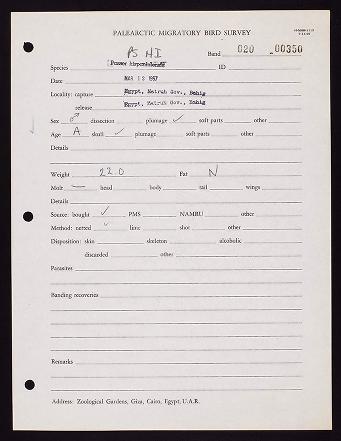 PALEARCTIC MIGRATORY BIRD SURVEY
PS HI Band 020 -00350
Species Passer hispaniolensis ID
Date MAR 12 1967
Locality: capture Egypt, Matruh Gov., Bahig
release Egypt, Matruh Gov., Bahig
Sex ♂ dissection plumage ✓ soft parts other
Age A skull ✓ plumage soft parts other
Details
Weight 22.0 Fat N
Molt — head body tail wings
Details
Source: bought ✓ PMS NAMRU other
Method: netted ✓ lime shot other
Disposition: skin skeleton alcoholic
discarded other
Parasites
Banding recoveries
Remarks
Address: Zoological Gardens, Giza, Cairo, Egypt, U.A.R.